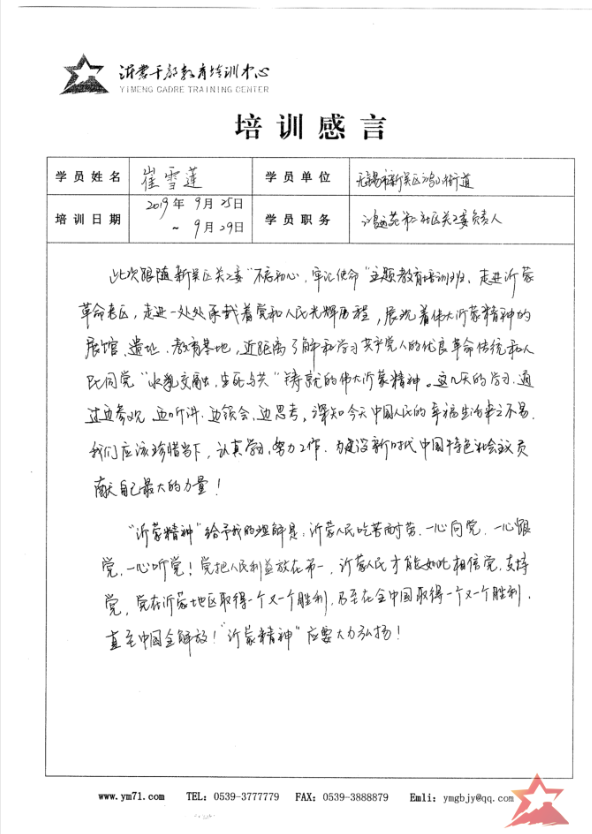 沂蒙干部教育培训中心
YIMENG CADRE TRAINING CENTER
培训感言
学员姓名 崔雪莲 学员单位 无锡市新吴区鸿山街道
培训日期 2019年9月25日 ~ 9月29日 学员职务 鸿运苑第二社区关工委负责人
此次跟随新吴区关工委“不忘初心、牢记使命”主题教育培训班,走进沂蒙
革命老区,走进一处处承载着党和人民光辉历程,展现着伟大沂蒙精神的
展馆、遗址、教育基地,近距离了解和学习共产党人的优良革命传统和人
民同党“水乳交融、生死与共”铸就的伟大沂蒙精神。这几天的学习,通
过边参观、边听讲、边领会、边思考,深知今天中国人民的幸福生活来之不易,
我们应该珍惜当下,认真学习、努力工作,为建设新时代中国特色社会主义贡
献自己最大的力量!
“沂蒙精神”给予我的理解是:沂蒙人民吃苦耐劳、一心向党、一心跟
党、一心听党!党把人民利益放在第一,沂蒙人民才能如此相信党,支持
党,党在沂蒙地区取得一个又一个胜利,乃至在全中国取得一个又一个胜利,
直至中国全解放!“沂蒙精神”应要大力弘扬!
www.ym71.com TEL: 0539-3777779 FAX: 0539-3888879 Emli: ymgbjy@qq.com